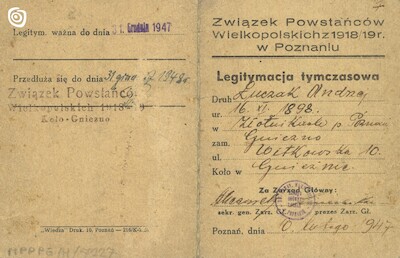 Legitym. ważna do dnia 31 Grudnia 1947
Przedłuża się do dnia 31 grud 1948 r.
Związek Powstańcó
Wielkopolskich 1918/19
Koło-Gniezno
„Wiedza” Druk. 10, Poznań
Związek Powstańców
Wielkopolskich z 1918/19 r.
w Poznaniu
Legitymacja tymczasowa
Druh Łuczak Andrzej
ur. 16. XI. 1898.
w Złotniki p. Poznań
zam. Gniezno
ul. Witkowska 10.
Koło w Gnieźnie
Za Zarząd Główny:
sekr. gen. Zarz. Gł. prezes Zarz. Gł.
Poznań, dnia lutego 1947